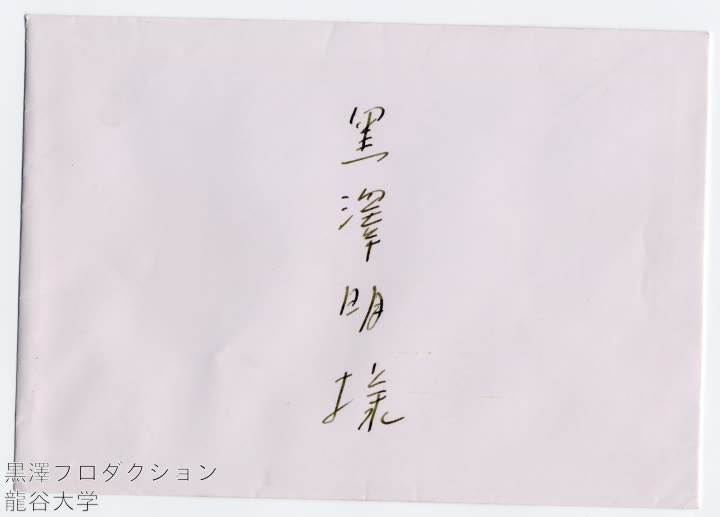 黒澤明様
黒澤フロダクション
龍谷大学